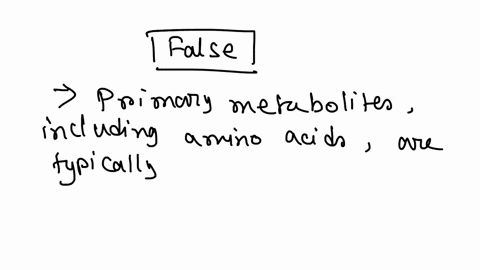 False
→ Primary metabolites,
including amino acids, are
typically